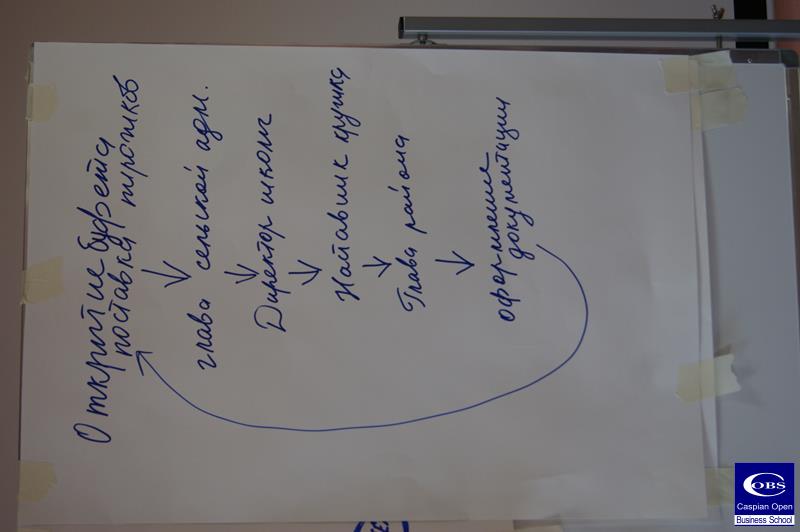 Открытие буфета
поставка пирожков
глава сельской адм.
Директор школы
Наставник кружка
Глава района
оформление
документации
COBS
Caspian Open
Business School